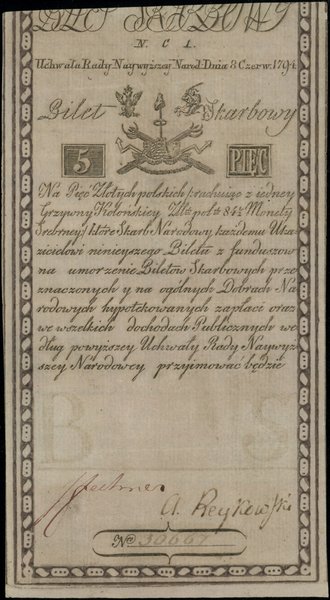 BILET SKARBOWY
N. C 1.
Uchwała Rady Naywyższey Narod: Dnia 8 Czerw: 1794
Bilet Skarbowy
5 PIĘC
Na Pięc Złotych polskich rachuiąc z iedney
Grzywny Kolonskiey Złtt: pol: 84½ Monety
Srebrney) które Skarb Narodowy każdemu Oka-
zicielowi ninieyszego Biletu z funduszow
na umorzenie Biletów Skarbowych prze
znaczonych y na ogolnych Dobrach Na
rodowych hypotekowanych zapłaci oraz
we wszelkich dochodach Publicznych we
dług powyższey Uchwały Rady Naywyż
szey Narodowey przyimować będzie
B S
A. Reykowski
No 30667